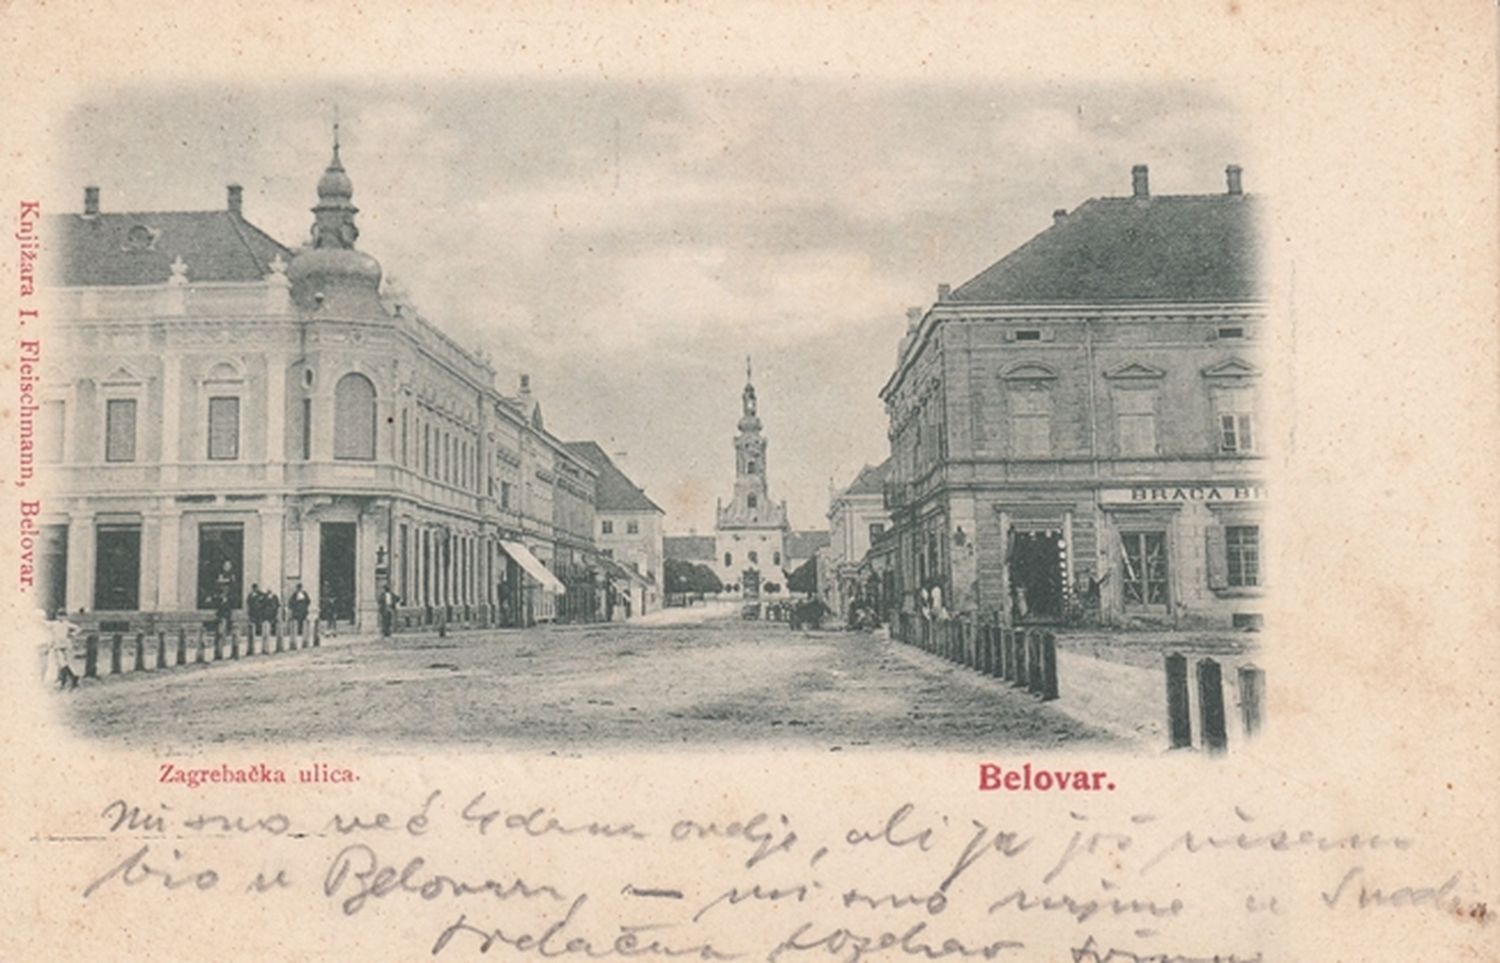 Knjižara I. Fleischmann, Belovar.
BRAĆA BR
Zagrebačka ulica.
Belovar.
Mi smo već 4 dana ovdje, ali ja još nisam
bio u Belovaru, — mi smo u
Srdačan pozdrav